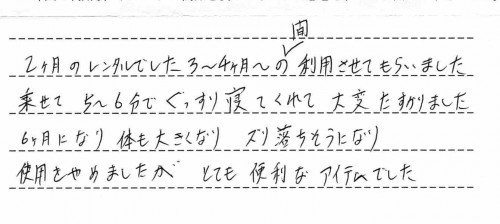 2ヶ月のレンタルでした 3〜4ヶ月〜の間利用させてもらいました
乗せて 5〜6分で ぐっすり寝てくれて 大変たすかりました
6ヶ月になり 体も大きくなり ズリ落ちそうになり
使用をやめましたが とても便利なアイテムでした